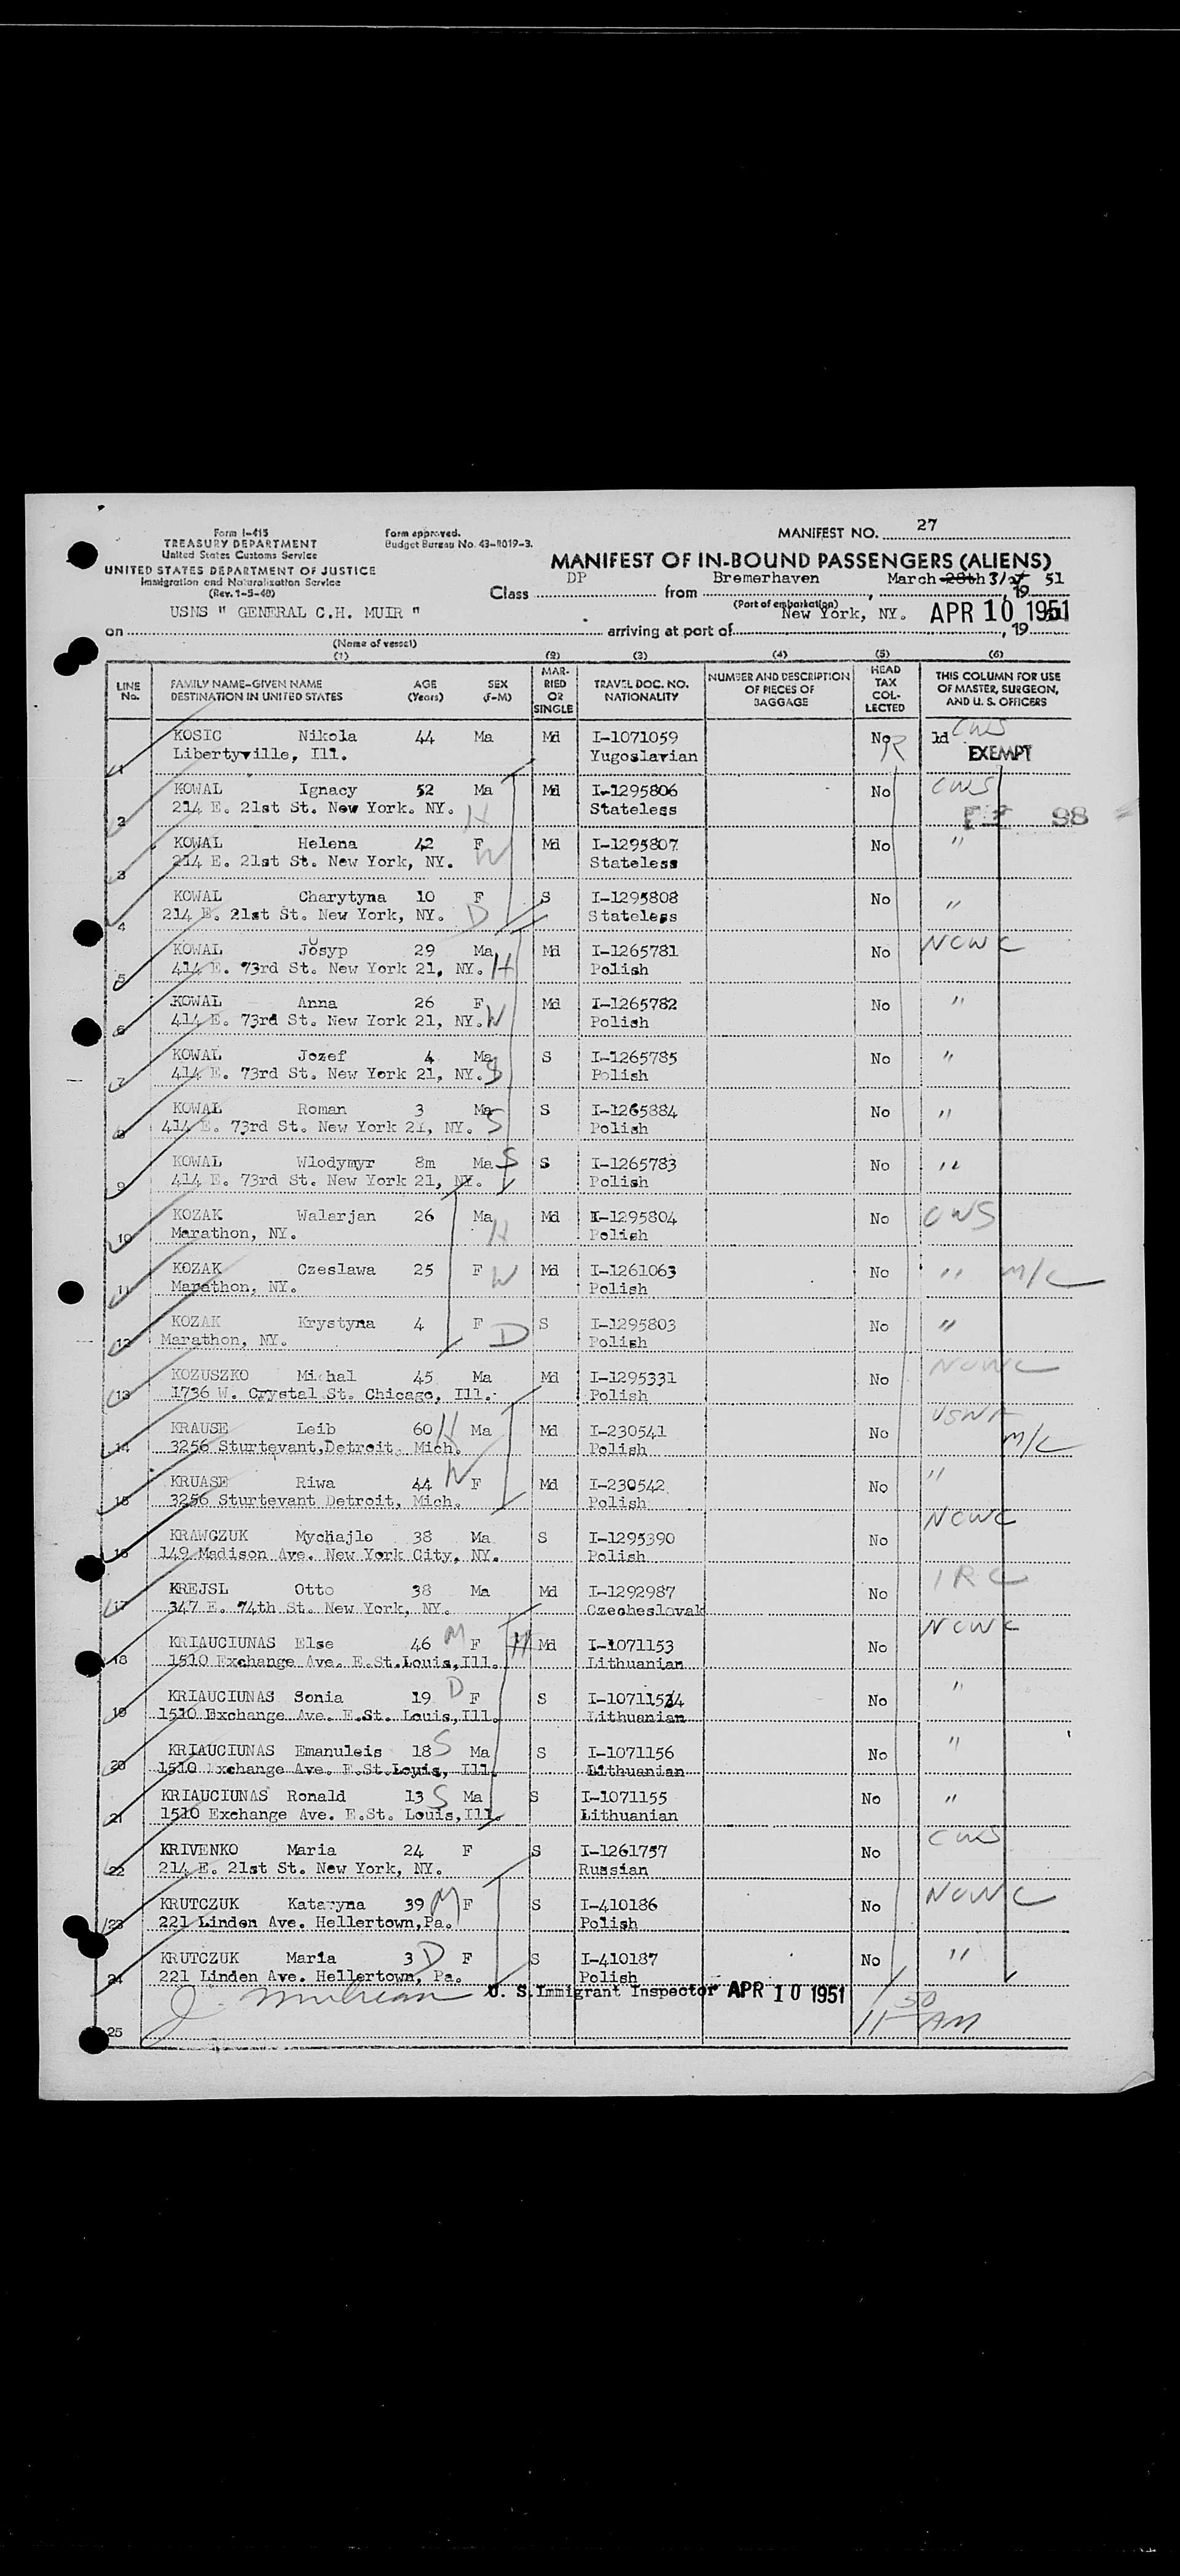 Form I-415
TREASURY DEPARTMENT
United States Customs Service
UNITED STATES DEPARTMENT OF JUSTICE
Immigration and Naturalization Service
(Rev. 1-5-48)
Form approved.
Budget Bureau No. 43-R019-3.
MANIFEST NO. 27
MANIFEST OF IN-BOUND PASSENGERS (ALIENS)
Class DP from Bremerhaven, March 28th 31st, 19 51
(Port of embarkation)
on USNS " GENERAL C.H. MUIR " arriving at port of New York, NY. APR 10 1951, 19
(Name of vessel)
(1) (2) (3) (4) (5) (6)
LINE No. FAMILY NAME-GIVEN NAME DESTINATION IN UNITED STATES AGE (Years) SEX (F-M) MAR-RIED OR SINGLE TRAVEL DOC. NO. NATIONALITY NUMBER AND DESCRIPTION OF PIECES OF BAGGAGE HEAD TAX COL-LECTED THIS COLUMN FOR USE OF MASTER, SURGEON, AND U. S. OFFICERS
KOSIC Nikola 44 Ma Md I-1071059 No R ld CWS
1 Libertyville, Ill. Yugoslavian EXEMPT
KOWAL Ignacy 52 Ma Md I-1295806 No CWS
2 214 E. 21st St. New York. NY. H Stateless 88
KOWAL Helena 42 F Md I-1295807 No "
3 214 E. 21st St. New York, NY. W Stateless
KOWAL Charytyna 10 F S I-1295808 No "
4 214 E. 21st St. New York, NY. D Stateless
KOWAL Josyp 29 Ma Md I-1265781 No NCWC
5 414 E. 73rd St. New York 21, NY. H Polish
KOWAL Anna 26 F Md I-1265782 No "
6 414 E. 73rd St. New York 21, NY. W Polish
KOWAL Jozef 4 Ma S I-1265785 No "
7 414 E. 73rd St. New York 21, NY. S Polish
KOWAL Roman 3 Ma S I-1265884 No "
8 414 E. 73rd St. New York 21, NY. S Polish
KOWAL Wlodymyr 8m Ma S S I-1265783 No "
9 414 E. 73rd St. New York 21, NY. Polish
KOZAK Walarjan 26 Ma Md I-1295804 No CWS
10 Marathon, NY. H Polish
KOZAK Czeslawa 25 F W Md I-1261063 No " M/C
11 Marathon, NY. Polish
KOZAK Krystyna 4 F D S I-1295803 No "
12 Marathon, NY. Polish
KOZUSZKO Michal 45 Ma Md I-1295331 No NCWC
13 1736 W. Crystal St. Chicago, Ill. Polish
KRAUSE Leib 60 H Ma Md I-230541 No USNA M/C
14 3256 Sturtevant,Detroit, Mich. Polish
KRUASE Riwa 44 W F Md I-230542 No "
15 3256 Sturtevant Detroit, Mich. Polish
KRAWCZUK Mychajlo 38 Ma S I-1295390 No NCWC
16 149 Madison Ave. New York City, NY. Polish
KREJSL Otto 38 Ma Md I-1292987 No IRC
17 347 E. 74th St. New York, NY. Czecheslovak
KRIAUCIUNAS Else 46 M F Md I-1071153 No NCWC
18 1510 Exchange Ave. E.St.Louis,Ill. Lithuanian
KRIAUCIUNAS Sonia 19 D F S I-1071154 No "
19 1510 Exchange Ave. E.St. Louis,Ill. Lithuanian
KRIAUCIUNAS Emanuleis 18 S Ma S I-1071156 No "
20 1510 Exchange Ave. E.St.Louis, Ill. Lithuanian
KRIAUCIUNAS Ronald 13 S Ma S I-1071155 No "
21 1510 Exchange Ave. E.St. Louis,Ill. Lithuanian
KRIVENKO Maria 24 F S I-1261757 No CWS
22 214 E. 21st St. New York, NY. Russian
KRUTCZUK Kataryna 39 M F S I-410186 No NCWC
23 221 Linden Ave. Hellertown,Pa. Polish
KRUTCZUK Maria 3 D F S I-410187 No "
24 221 Linden Ave. Hellertown, Pa. Polish
U. S. Immigrant Inspector APR 10 1951
25 11 50 AM